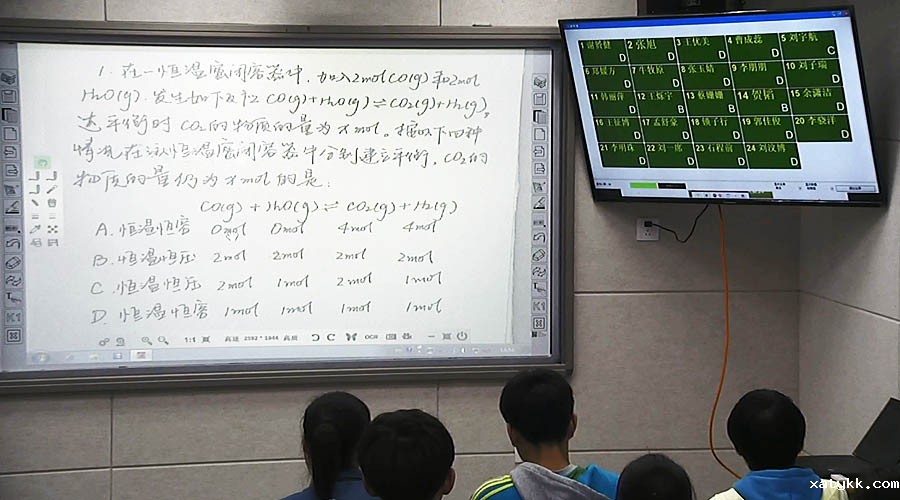 1. 在一恒温密闭容器中,加入2mol CO(g)和2mol
H₂O(g).发生如下反应 CO(g)+H₂O(g)⇌CO₂(g)+H₂(g),
达平衡时CO₂的物质的量为xmol。按以下四种
情况,在该恒温密闭容器中分别建立平衡,CO₂的
物质的量仍为xmol的是:
CO(g) + H₂O(g) ⇌ CO₂(g) + H₂(g)
A.恒温恒容 0mol 0mol 4mol 4mol
B.恒温恒压 2mol 2mol 2mol 2mol
C.恒温恒压 2mol 1mol 2mol 1mol
D.恒温恒容 1mol 1mol 1mol 1mol
1:1 高速 2592 * 1944 高质 OCR
K1 K1
2 张旭 D 3 王优美 D 4 曹成蕊 D 5 刘宇航 C
D 7 牛牧原 D 8 张玉婧 D 9 李朋朋 D 10 刘子瑞 D
11 韩丽萍 D 12 王烁宇 D 13 蔡姗姗 B 14 贺韬 B 15 余潇洁 D
16 王征博 D 17 孟舒豪 D 18 D 19 郭佳俊 D 20 李骁洋 D
21 李明珠 D 22 刘一席 D 23 石程前 D 24 刘汶博 D
xatykk.com